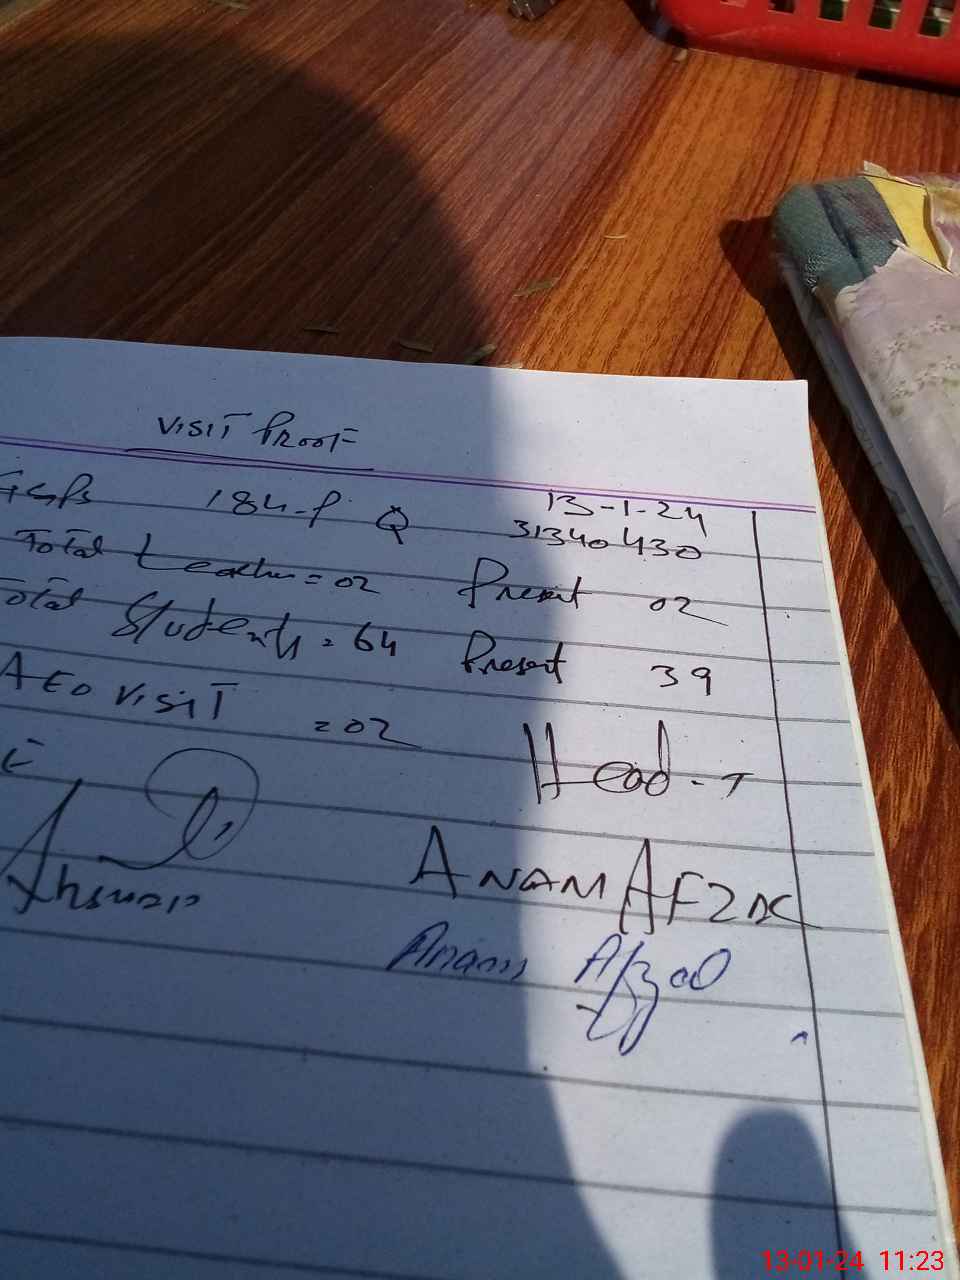 VISIT PROOF
184-P Q 13-1-24
31340430
Total Teacher = 02 Present 02
Total Students = 64 Present 39
AEO VISIT = 02
Head-T
ANAM AFZAL
Anam Afzal
13-01-24 11:23